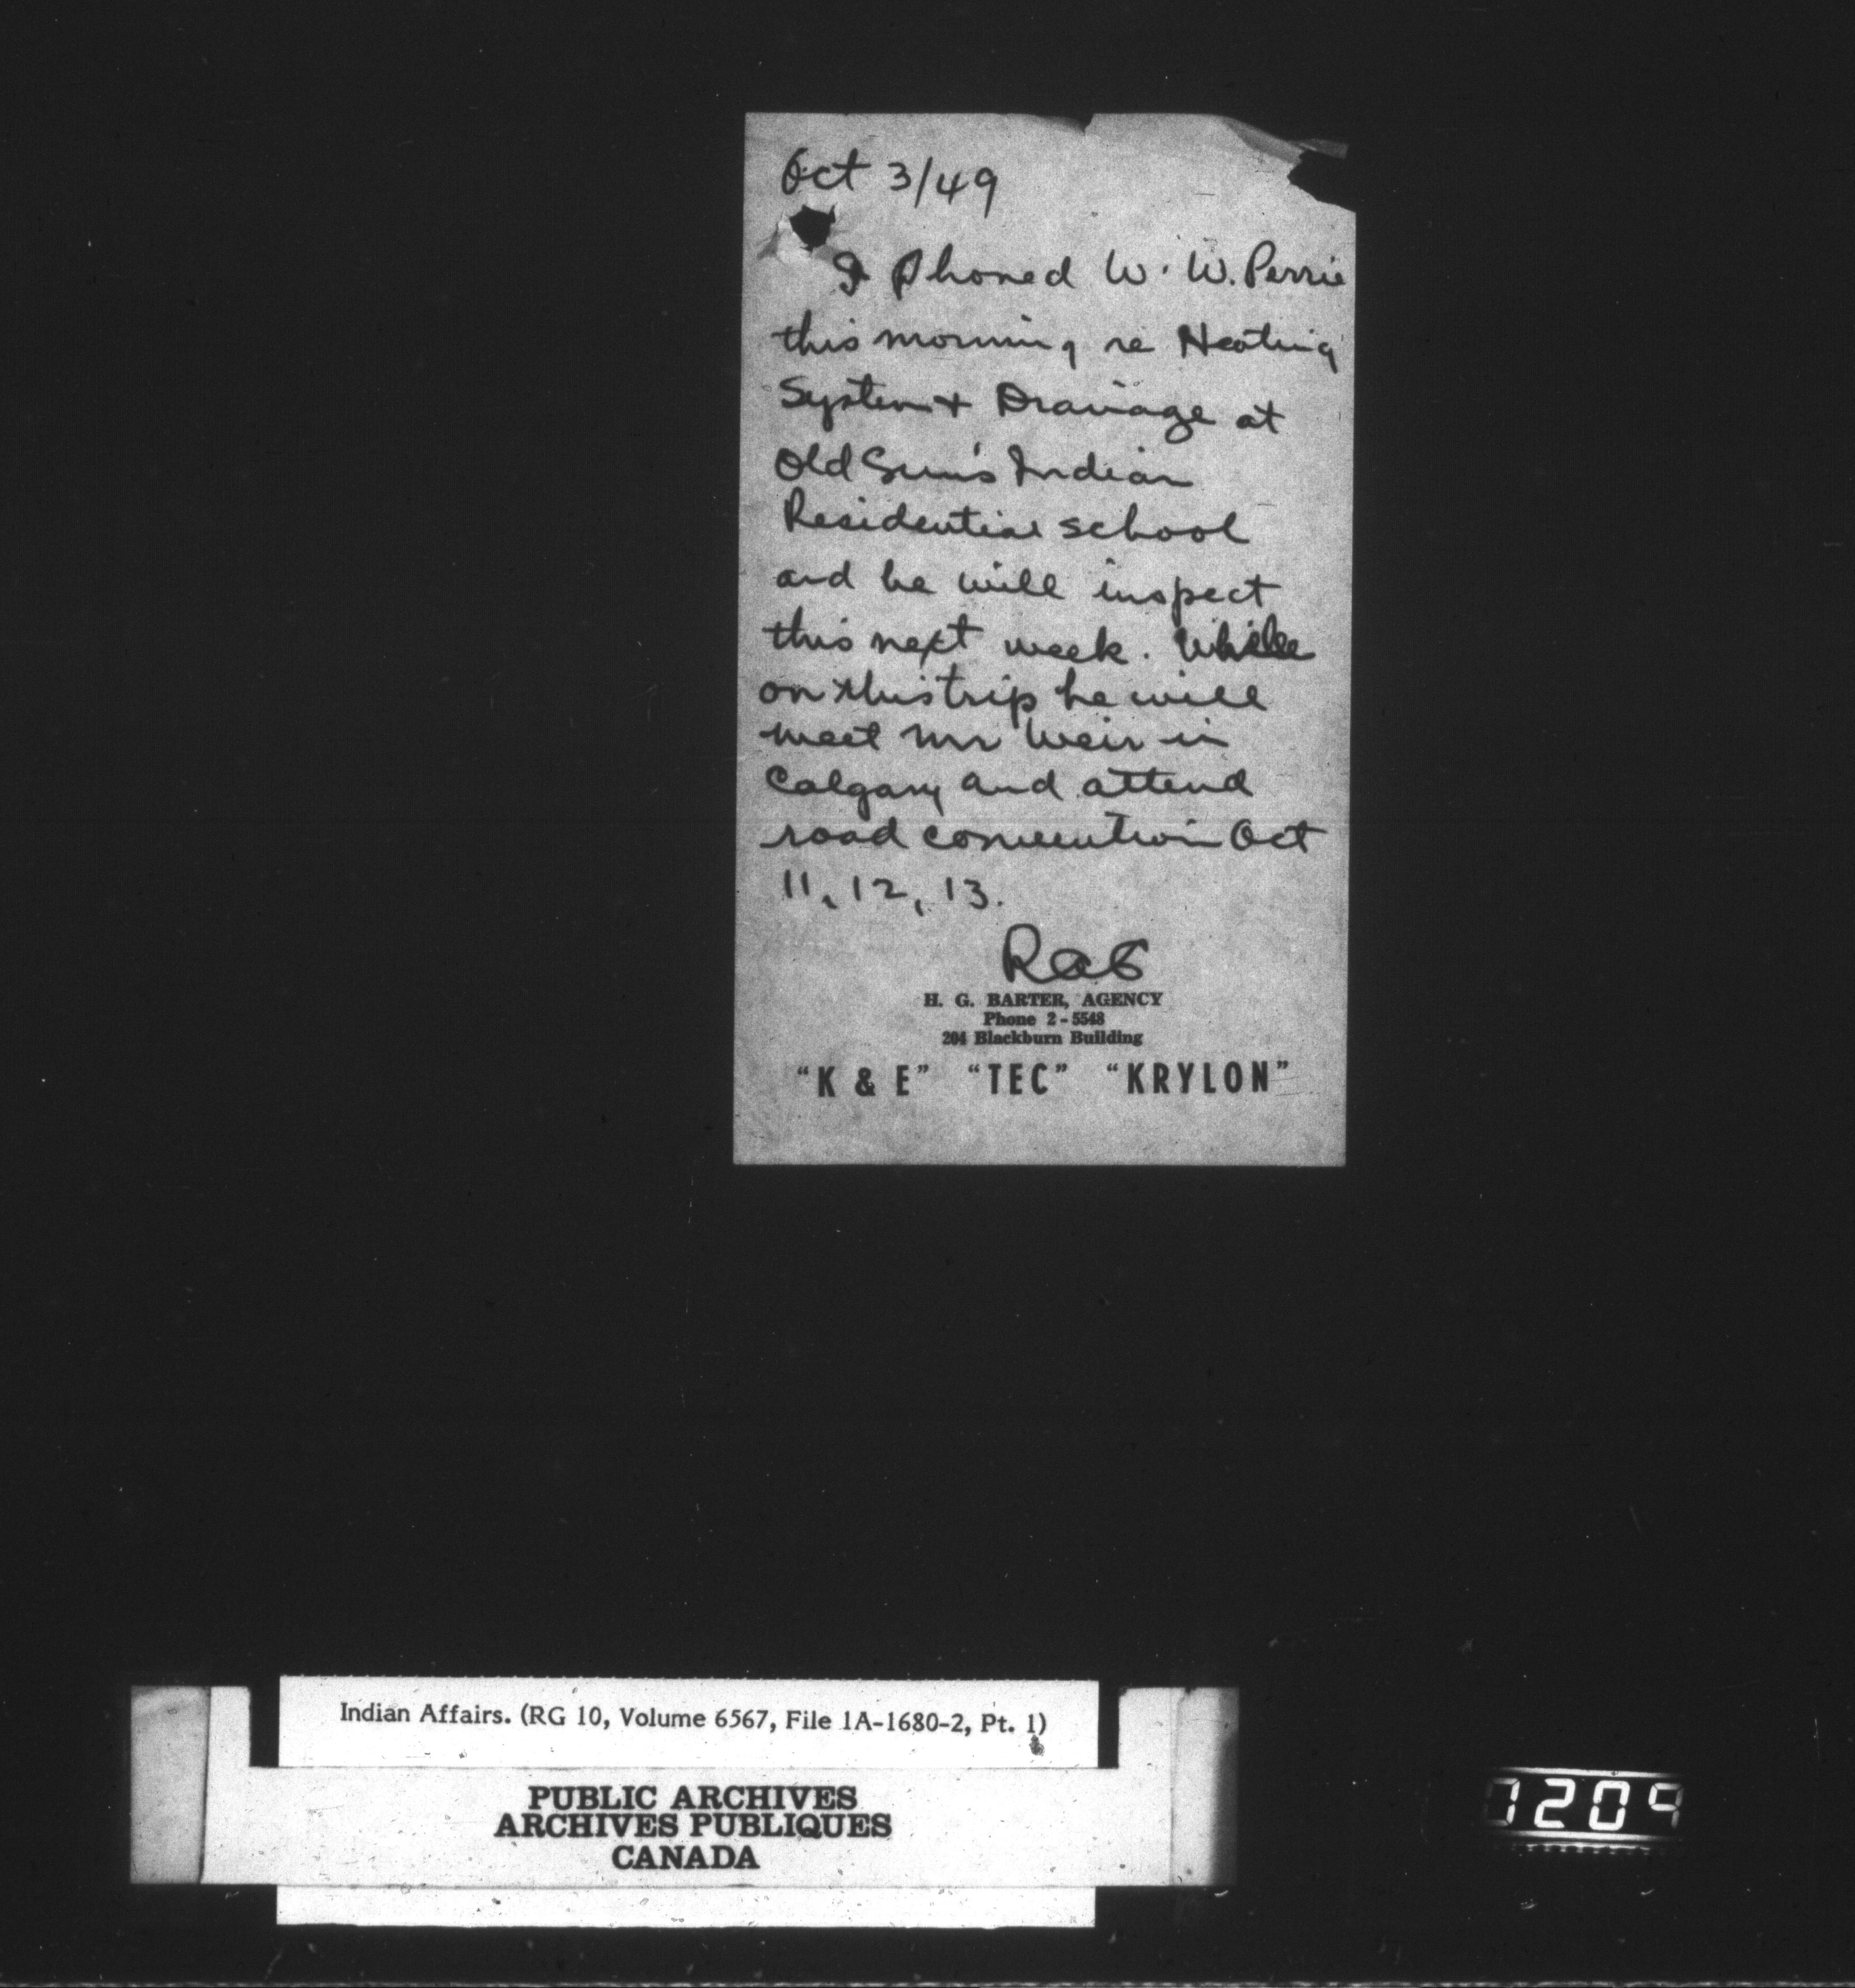 Oct 3/49
I phoned W. W. Perrie
this morning re Heating
System + Drainage at
Old Sun's Indian
Residential School
and he will inspect
this next week. While
on this trip he will
meet Mr Weir in
Calgary and attend
road convention Oct
11, 12, 13.
H. G. BARTER, AGENCY
Phone 2-5548
204 Blackburn Building
"K & E" "TEC" "KRYLON"
Indian Affairs. (RG 10, Volume 6567, File 1A-1680-2, Pt. 1)
PUBLIC ARCHIVES
ARCHIVES PUBLIQUES
CANADA